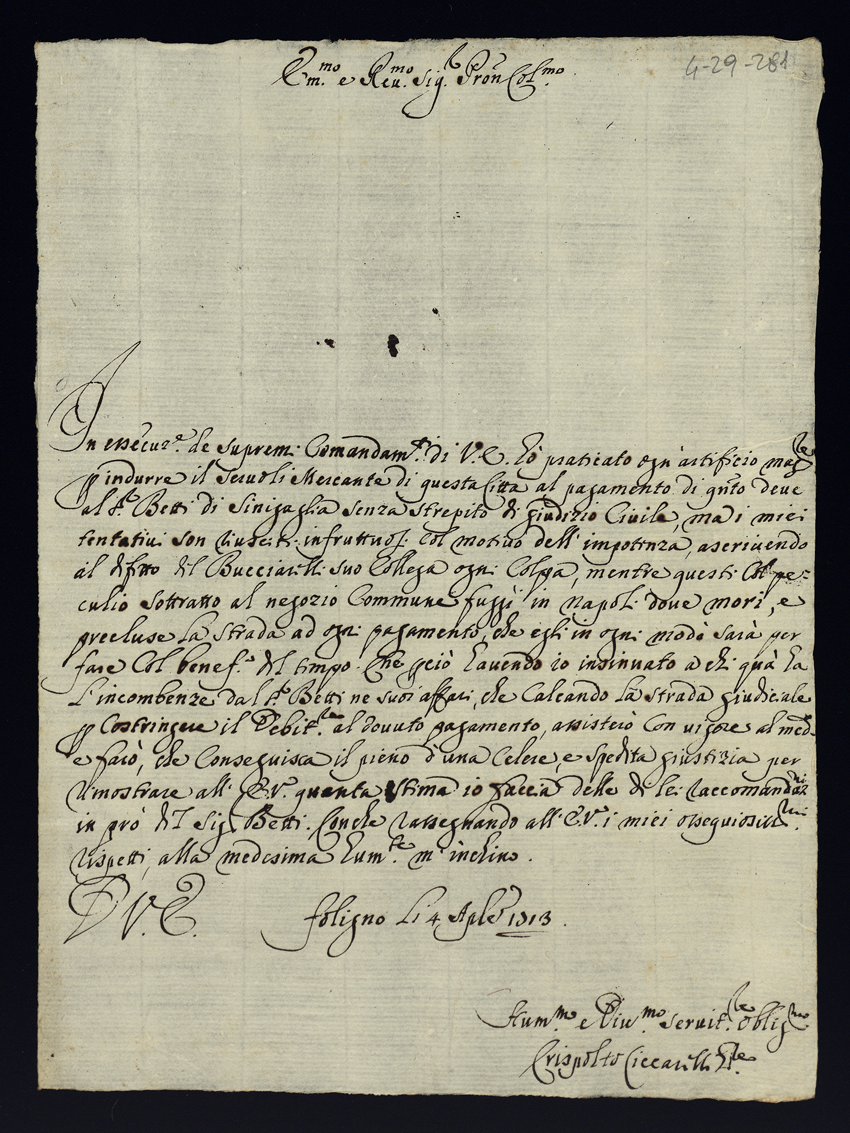 Em.mo e Reu.mo Sig.r Pron Col.mo
4-29-281
In essecuz.e de supremi Comandam.ti di V.E. hò praticato ogn'artificio mag.le
p indurre il Seruoli Mercante di questa Città al pagamento di q.nto deue
al S.r Betti di Sinigaglia senza strepito di giudizio Ciuile, ma i miei
tentatiui son riusciti infruttuosi col motiuo dell'impotenza, ascriuendo
al difetto del Bucciarelli suo Collega ogni Colpa, mentre questi Col pe=
culio sottratto al negozio Commune fuggì in Napoli doue morì, e
precluse la strada ad ogni pagamento, che egli in ogni modo saria per
fare Col benef.o del tempo. Che p ciò hauendo io insinuato a chi quà ha
l'incombenze dal S.r Betti ne suoi affari, che Calcando la strada giudiciale
p Costringere il Debit.re al douuto pagamento, assisterò con uigore al med.
e farò, che Conseguisca il pieno d'una Celere, e spedita giustizia per
dimostrare all'E.V. quanta stima io faccia delle di lei raccomandaz.ni
in prò del Sig. Betti. Conche rassegnando all'E.V. i miei ossequiosiss.mi
rispetti, alla medesima hum.te m'inchino.
D V.E.
foligno Li 4 Aple 1713.
Hum.mo e Diu.mo seruit.re oblig.mo
Crispolto Ciccarelli